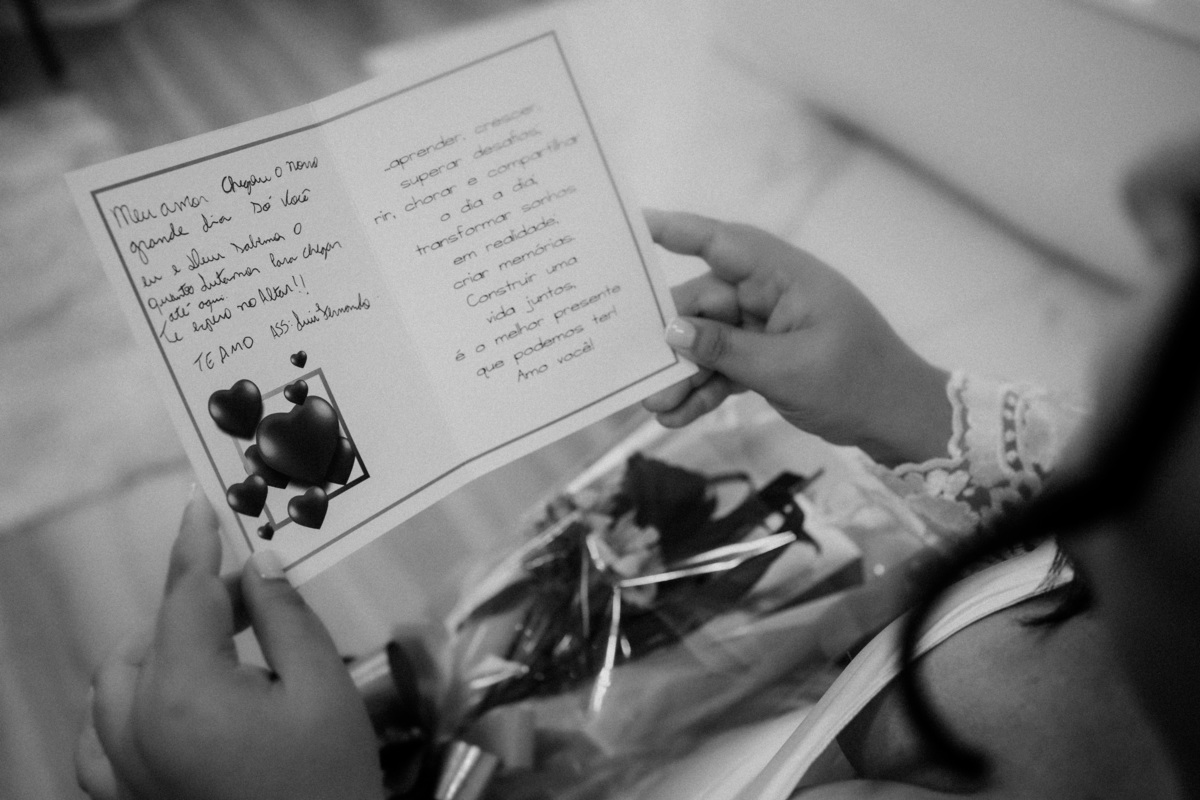 Meu amor Chegou o nosso
grande dia só você
eu e Deus sabemos o
quanto lutamos para chegar
até aqui.
Te espero no Altar!!
TE AMO ASS: Luis Fernando
...aprender, crescer,
superar desafios,
rir, chorar e compartilhar
o dia a dia,
transformar sonhos
em realidade,
criar memórias.
Construir uma
vida juntos,
é o melhor presente
que podemos ter!
Amo você!